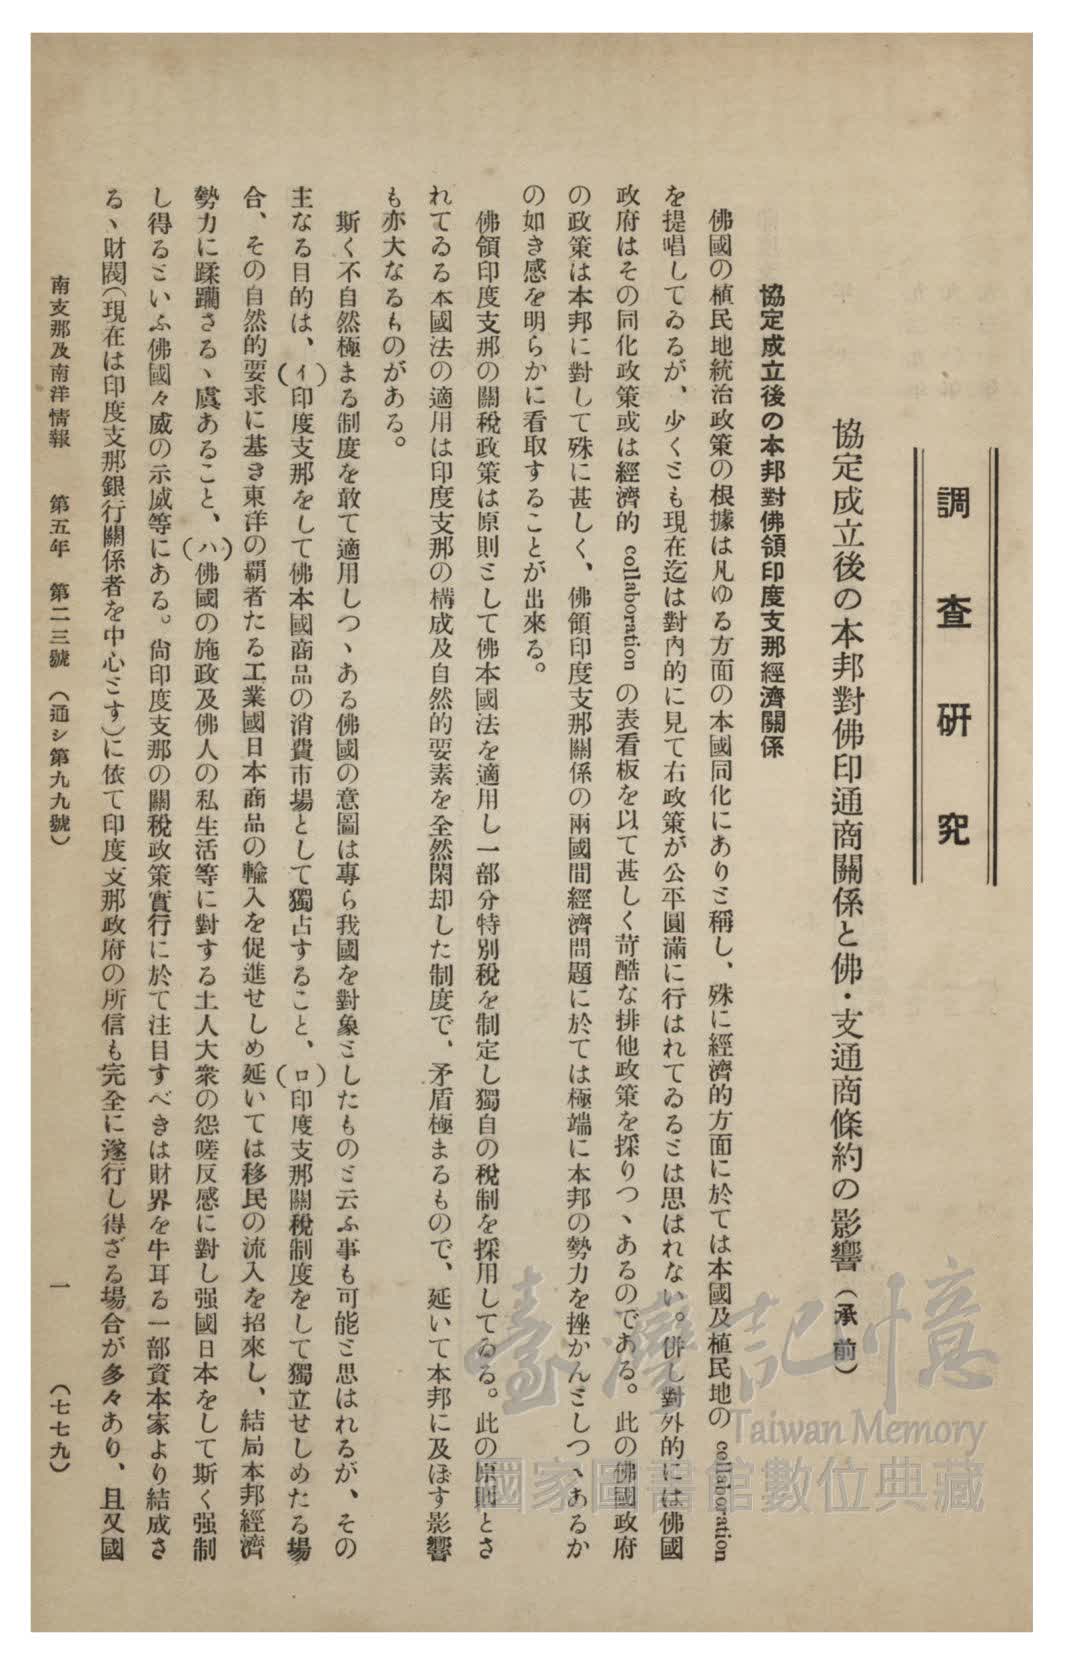 調査研究
協定成立後の本邦對佛印通商關係と佛・支通商條約の影響（承前）
協定成立後の本邦對佛領印度支那經濟關係
佛國の植民地統治政策の根據は凡ゆる方面の本國同化にありと稱し、殊に經濟的方面に於ては本國及植民地の collaboration
を提唱してゐるが、少くとも現在迄は對內的に見て右政策が公平圓滿に行はれてゐるとは思はれない。併し對外的には佛國
政府はその同化政策或は經濟的 collaboration の表看板を以て甚しく苛酷な排他政策を採りつゝあるのである。此の佛國政府
の政策は本邦に對して殊に甚しく、佛領印度支那關係の兩國間經濟問題に於ては極端に本邦の勢力を挫かんとしつゝあるか
の如き感を明らかに看取することが出來る。
佛領印度支那の關稅政策は原則として佛本國法を適用し一部分特別稅を制定し獨自の稅制を採用してゐる。此の原則とさ
れてゐる本國法の適用は印度支那の構成及自然的要素を全然閑却した制度で、矛盾極まるもので、延いて本邦に及ぼす影響
も亦大なるものがある。
斯く不自然極まる制度を敢て適用しつゝある佛國の意圖は專ら我國を對象としたものと云ふ事も可能と思はれるが、その
主なる目的は、（イ）印度支那をして佛本國商品の消費市場として獨占すること、（ロ）印度支那關稅制度をして獨立せしめたる場
合、その自然的要求に基き東洋の覇者たる工業國日本商品の輸入を促進せしめ延いては移民の流入を招來し、結局本邦經濟
勢力に蹂躪さるゝ虞あること、（ハ）佛國の施政及佛人の私生活等に對する土人大衆の怨嗟反感に對し强國日本をして斯く强制
し得るといふ佛國々威の示威等にある。尙印度支那の關稅政策實行に於て注目すべきは財界を牛耳る一部資本家より結成さ
るゝ財閥（現在は印度支那銀行關係者を中心とす）に依て印度支那政府の所信も完全に遂行し得ざる場合が多々あり、且又國
南支那及南洋情報　第五年　第二三號　（通シ第九九號）　一　（七七九）
臺灣記憶
Taiwan Memory
國家圖書館數位典藏